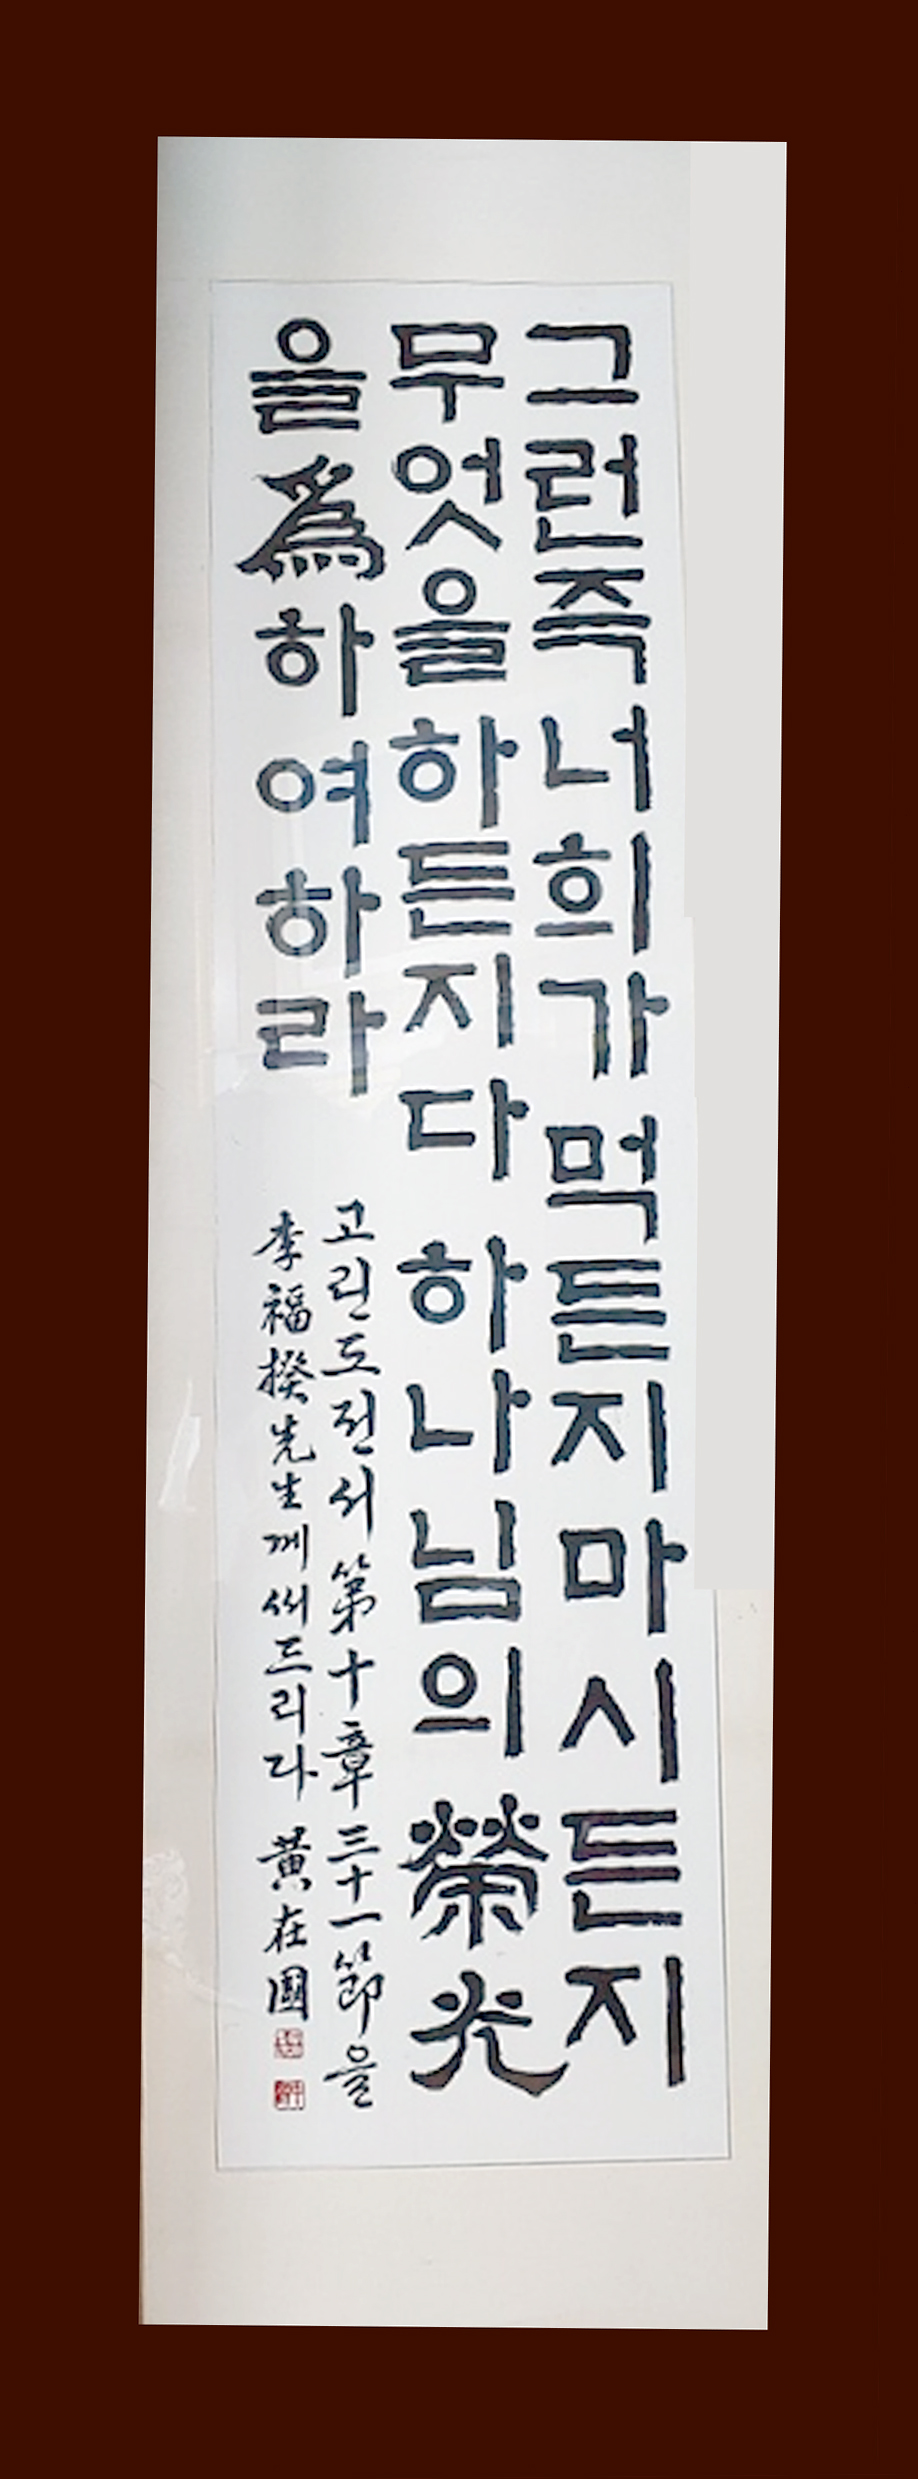 그런즉 너희가 먹든지 마시든지
무엇을 하든지 다 하나님의 榮光
을 爲하여 하라
고린도전서 第十章 三十一節을
李福揆先生께 써드리다 黃在國